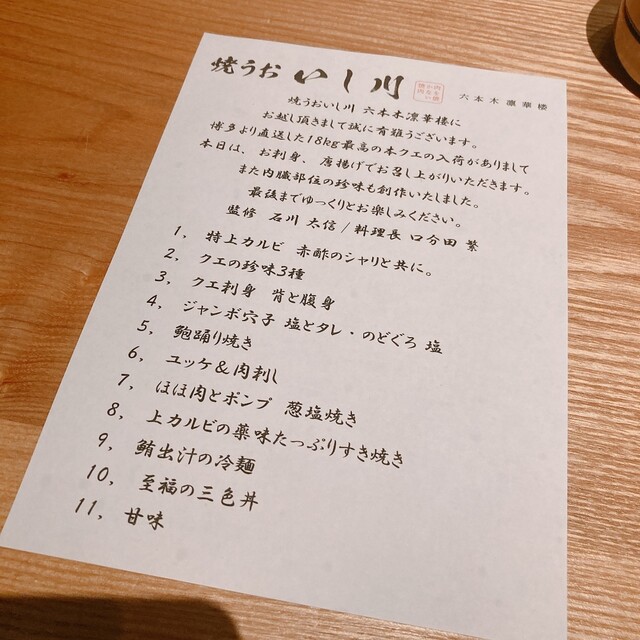 焼うお いし川
六本木 凛華楼
焼うおいし川 六本木凛華楼に
お越し頂きまして誠に有難うございます。
博多より直送した18kg最高の本クエの入荷がありまして
本日は、お刺身、唐揚げでお召し上がりいただきます。
また内臓部位の珍味も創作いたしました。
最後までゆっくりとお楽しみください。
監修 石川 太信/料理長 口分田 繁
1, 特上カルビ 赤酢のシャリと共に。
2, クエの珍味3種
3, クエ刺身 背と腹身
4, ジャンボ穴子 塩とタレ・のどぐろ 塩
5, 鮑踊り焼き
6, ユッケ&肉刺し
7, ほほ肉とポンプ 葱塩焼き
8, 上カルビの薬味たっぷりすき焼き
9, 鮪出汁の冷麺
10, 至福の三色丼
11, 甘味